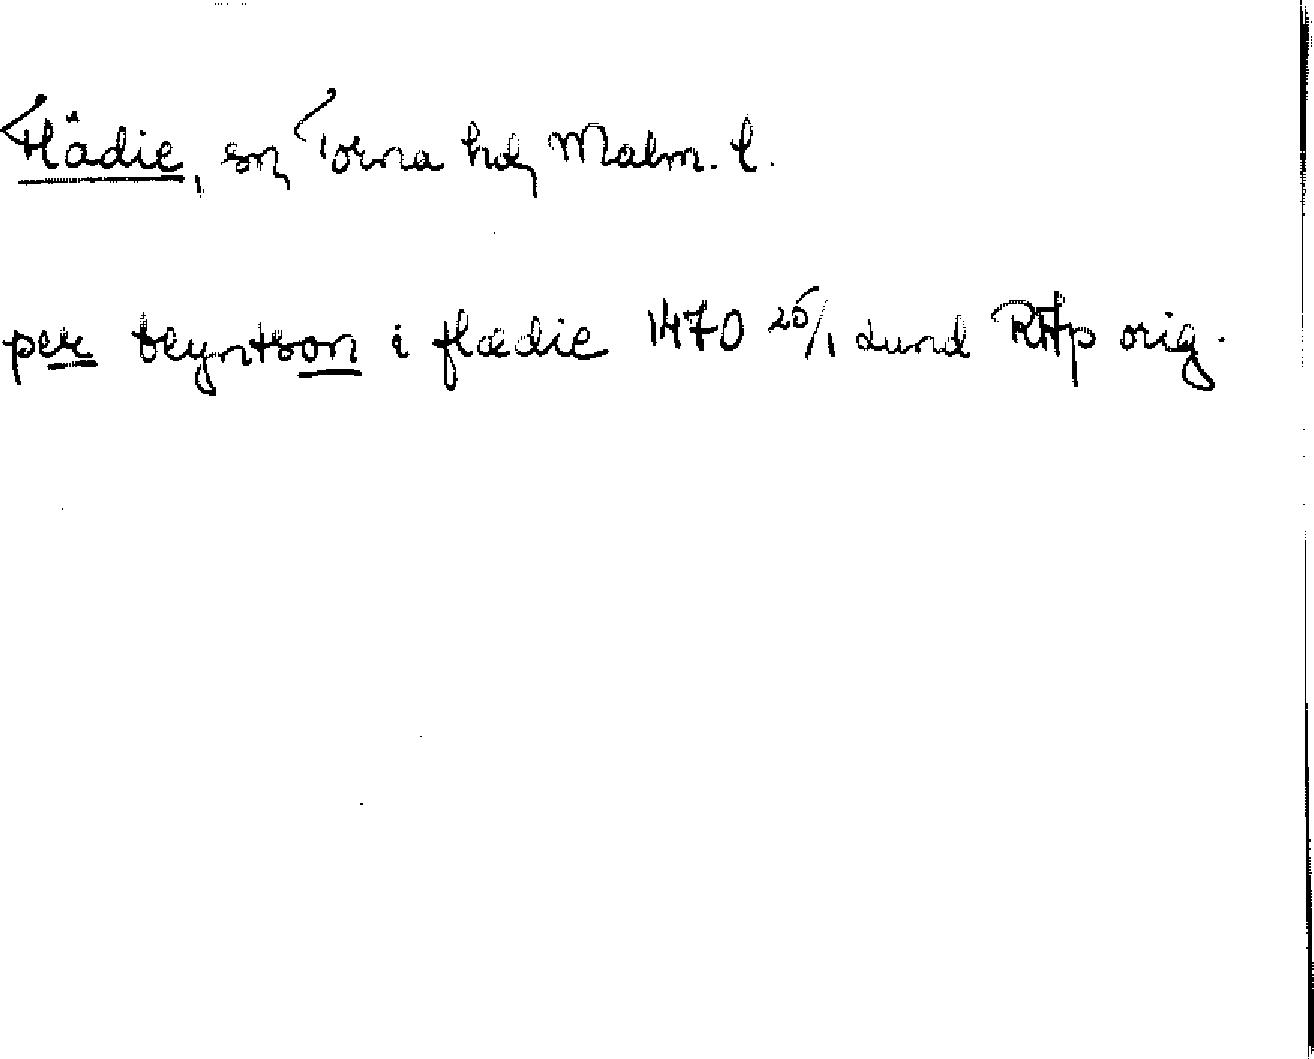 Flädie, sn, Torna hd, Malm. l.
per beyntson i flædie 1470 25/1 Lund RAp orig.